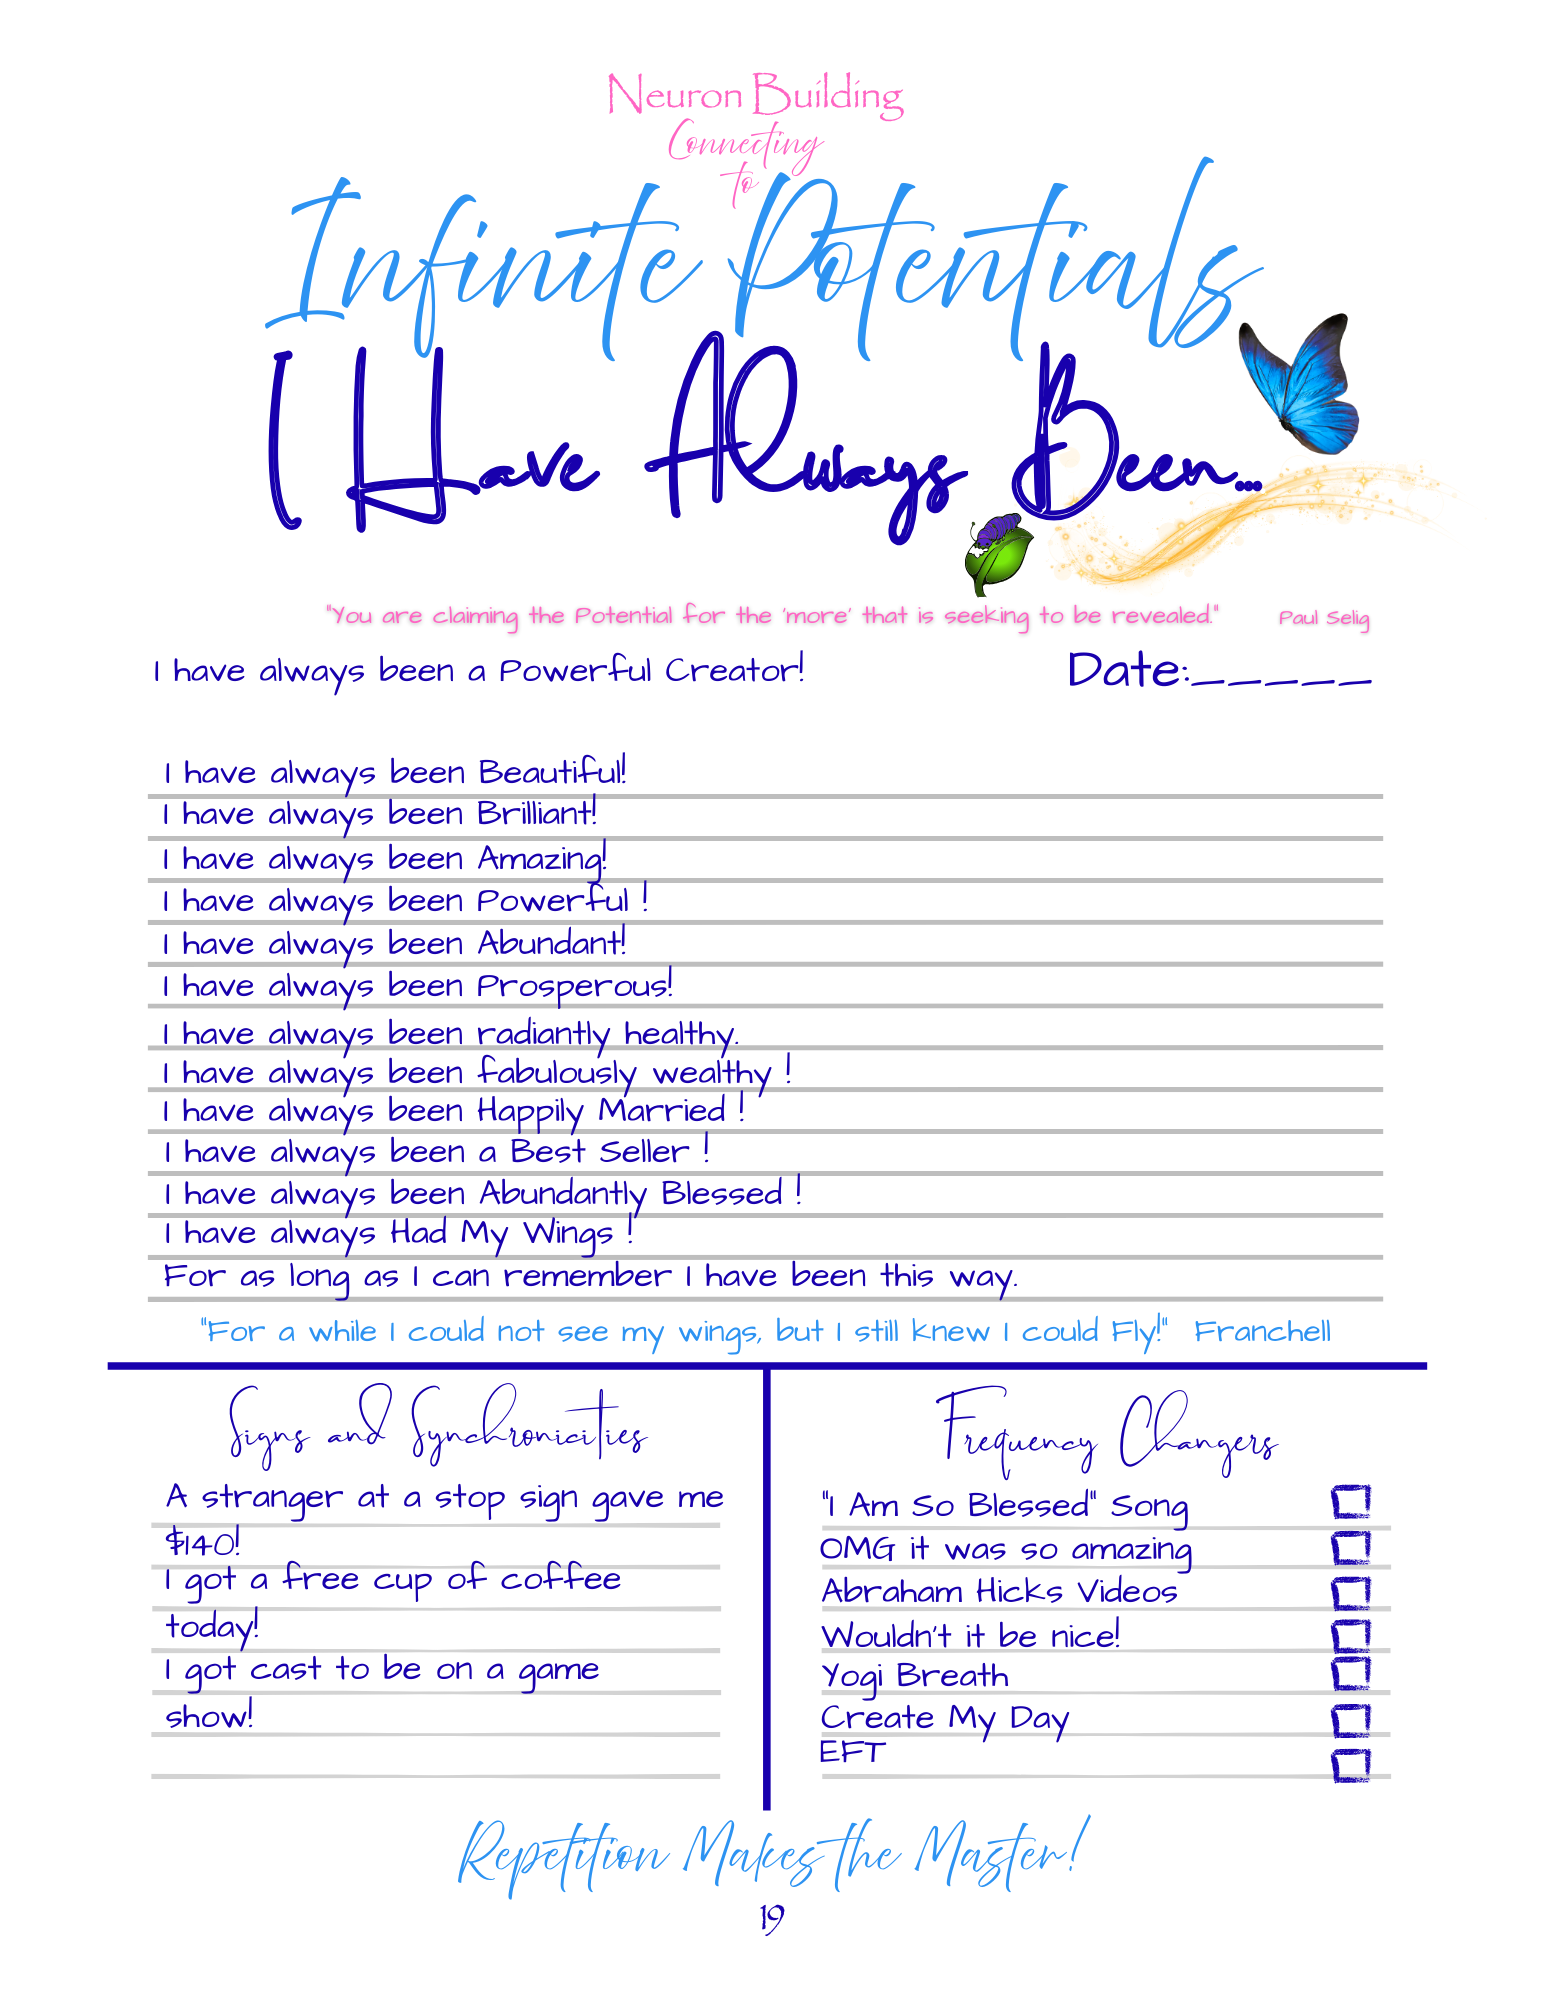 Neuron Building
Connecting
to
Infinite Potentials
I Have Always Been...
"You are claiming the Potential for the 'more' that is seeking to be revealed." Paul Selig
I have always been a Powerful Creator!
Date:_____
I have always been Beautiful!
I have always been Brilliant!
I have always been Amazing!
I have always been Powerful !
I have always been Abundant!
I have always been Prosperous!
I have always been radiantly healthy.
I have always been fabulously wealthy !
I have always been Happily Married !
I have always been a Best Seller !
I have always been Abundantly Blessed !
I have always Had My Wings !
For as long as I can remember I have been this way.
"For a while I could not see my wings, but I still knew I could Fly!" Franchell
Signs and Synchronicities
A stranger at a stop sign gave me
$140!
I got a free cup of coffee
today!
I got cast to be on a game
show!
Frequency Changers
"I Am So Blessed" Song
OMG it was so amazing
Abraham Hicks Videos
Wouldn't it be nice!
Yogi Breath
Create My Day
EFT
Repetition Makes the Master!
19